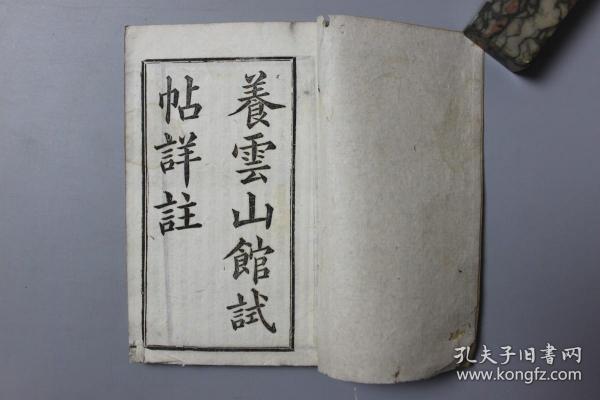 養雲山館試
帖詳註
孔夫子旧書网
www.kongfz.com